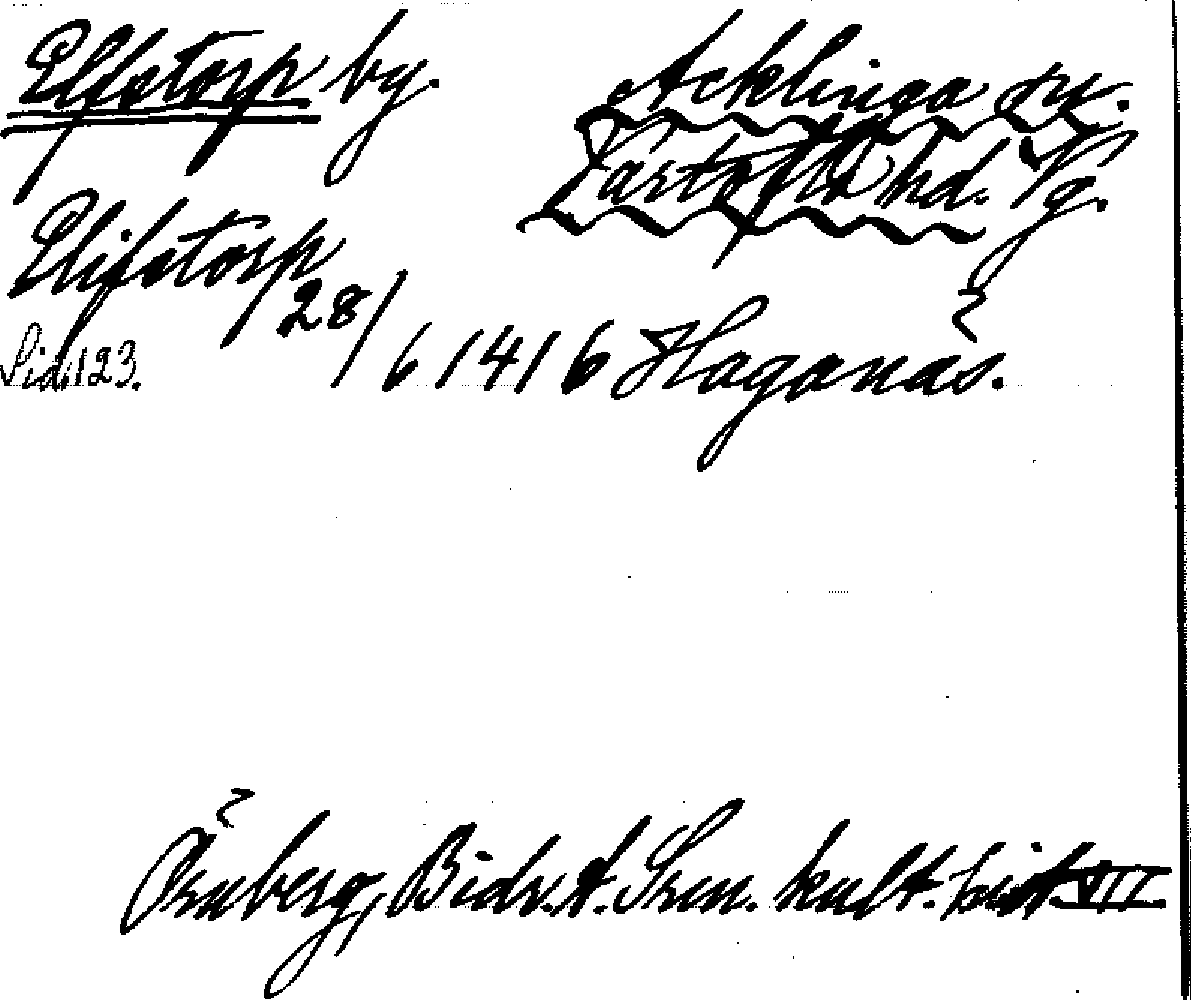 Elfstorp by.
Acklinga sn.
Vartofta hd. Vg.
Elifstorp 28/6 1416 Höganäs.
Sid. 123.
Örnberg, Bidr. t. Sven. kult. hist. VII.